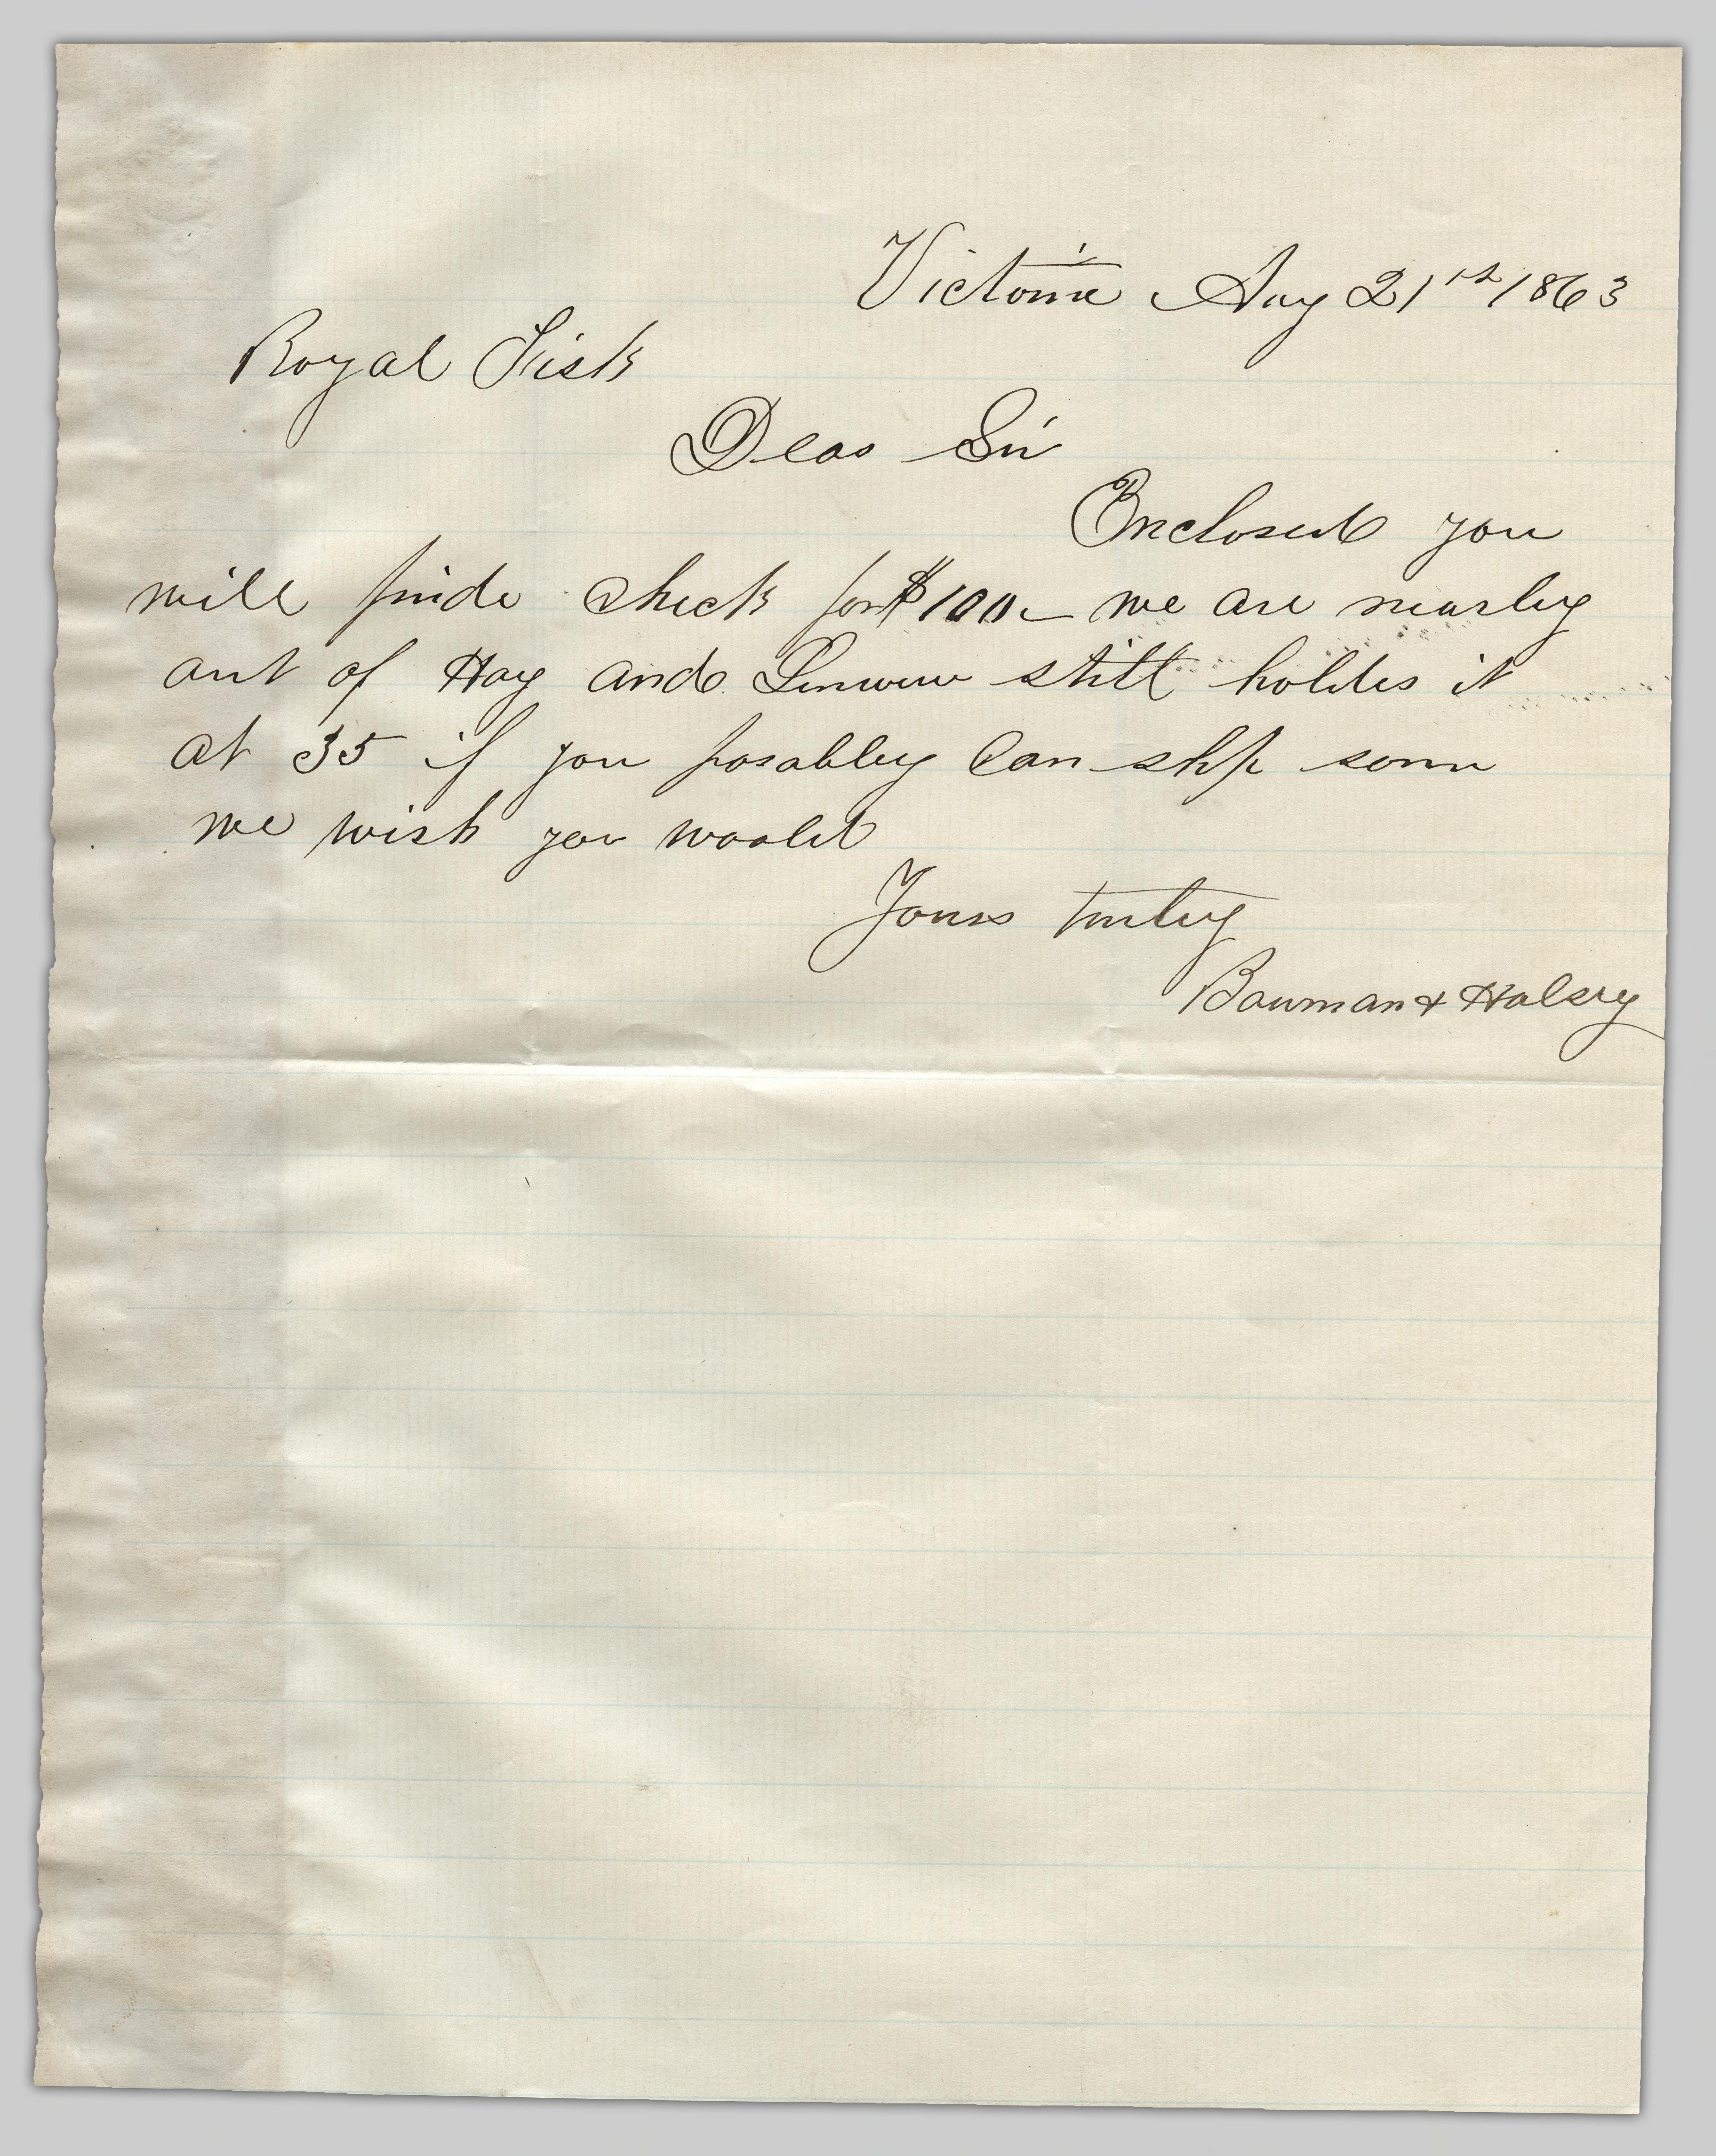 Victoria Aug 21st 1863
Royal Fisk
Dear Sir
Enclosed you
will finde check for $100 - we are nearley
out of Hay and still holdes it
at 35 if you posabley can ship some
we wish you would
Yours truley
Bowman & Halsey